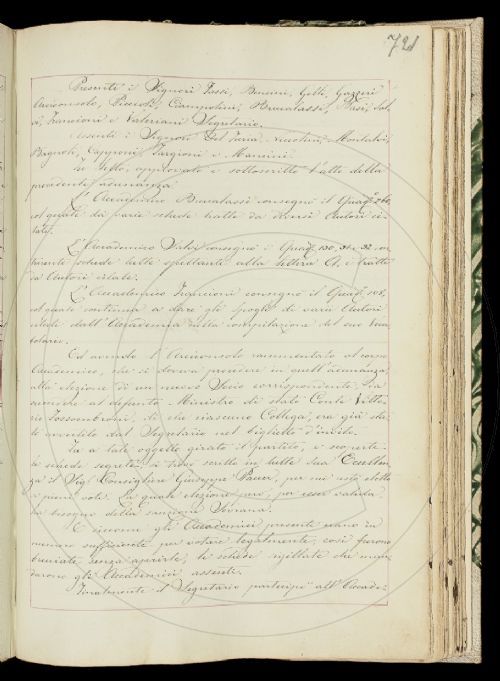 721
Presenti i Signori Tassi, Bencini, Gelli, Gazzeri
Arciconsolo, Piccioli, Ciampolini, Brucalassi, Nasi, Sal
vi, Franceschi e Valeriani Segretario.
Assenti i Signori Del Furia, Niccolini, Montalvi,
Bagnoli, Capponi, Targioni e Mancini.
Fu letto, approvato e sottoscritto l'atto della
precedente adunanza
L'Accademico Brucalassi consegnò il Quad.
col quale dà varie schede tratte da diversi Autori ci
tati.
L'Accademico Salvi consegnò i Quad. 130, 31 e 32 con
tenente schede tutte spettanti alla lettera A, e tratte
da Autori citati.
L'Accademico consegnò il Quad. 108,
col quale continua a dare gli spogli di varii Autori
citati dall'Accademia nella compilazione del suo Voca
bolario.
Ed avendo l'Arciconsolo rammentato al corpo
Accademico, che si doveva procedere in quell'adunanza
alla elezione di un nuovo Socio corrispondente, da
surrogare al defunto Ministro di stato Conte Vitto
rio Fossombroni, di che ciascuno Collega era già sta
to avvertito dal Segretario nel biglietto d'invito.
Fu a tale oggetto girato il partito, e scoperte
le schede segrete, si trovò scritto in tutte Sua Eccellen
za il Sig. Consigliere Giuseppe Pauer, per cui restò eletto
a pieni voti. La quale elezione però, per esser valida
ha bisogno della sanzione Sovrana.
E siccome gli Accademici presenti erano in
numero sufficiente per votare legalmente, così furono
bruciate senza aprirle, le schede sigillate che man
darono gli Accademici assenti.
Finalmente il Segretario partecipò all'Accade=